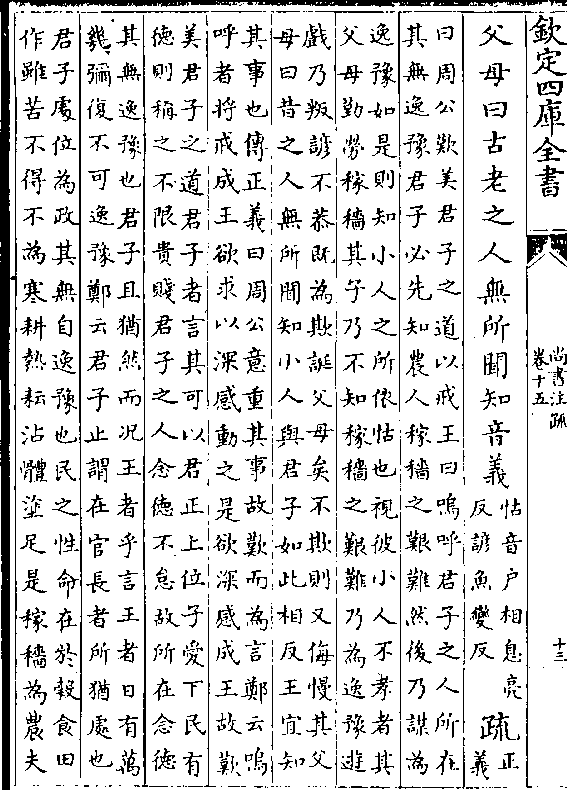 欽定四庫全書
尚書注疏
卷十五
十三
父母曰古老之人無所聞知音義怙音户相息亮
反諺魚變反
疏正
義
曰周公歎美君子之道以戒王曰嗚呼君子之人所在
其無逸豫君子必先知農人稼穡之艱難然後乃謀為
逸豫如是則知小人之所依怙也視彼小人不孝者其
父母勤勞稼穡其子乃不知稼穡之艱難乃為逸豫遊
戲乃叛諺不恭既為欺誕父母矣不欺則又侮慢其父
母曰昔之人無所聞知小人與君子如此相反王宜知
其事也傳正義曰周公意重其事故歎而為言鄭云嗚
呼者將戒成王欲求以深感動之是欲深感成王故歎
美君子之道君子者言其可以君正上位子愛下民有
德則稱之不限貴賤君子之人念德不怠故所在念德
其無逸豫也君子且猶然而况王者乎言王者日有萬
幾彌復不可逸豫鄭云君子止謂在官長者所猶處也
君子處位為政其無自逸豫也民之性命在於穀食田
作雖苦不得不為寒耕熱耘沾體塗足是稼穡為農夫